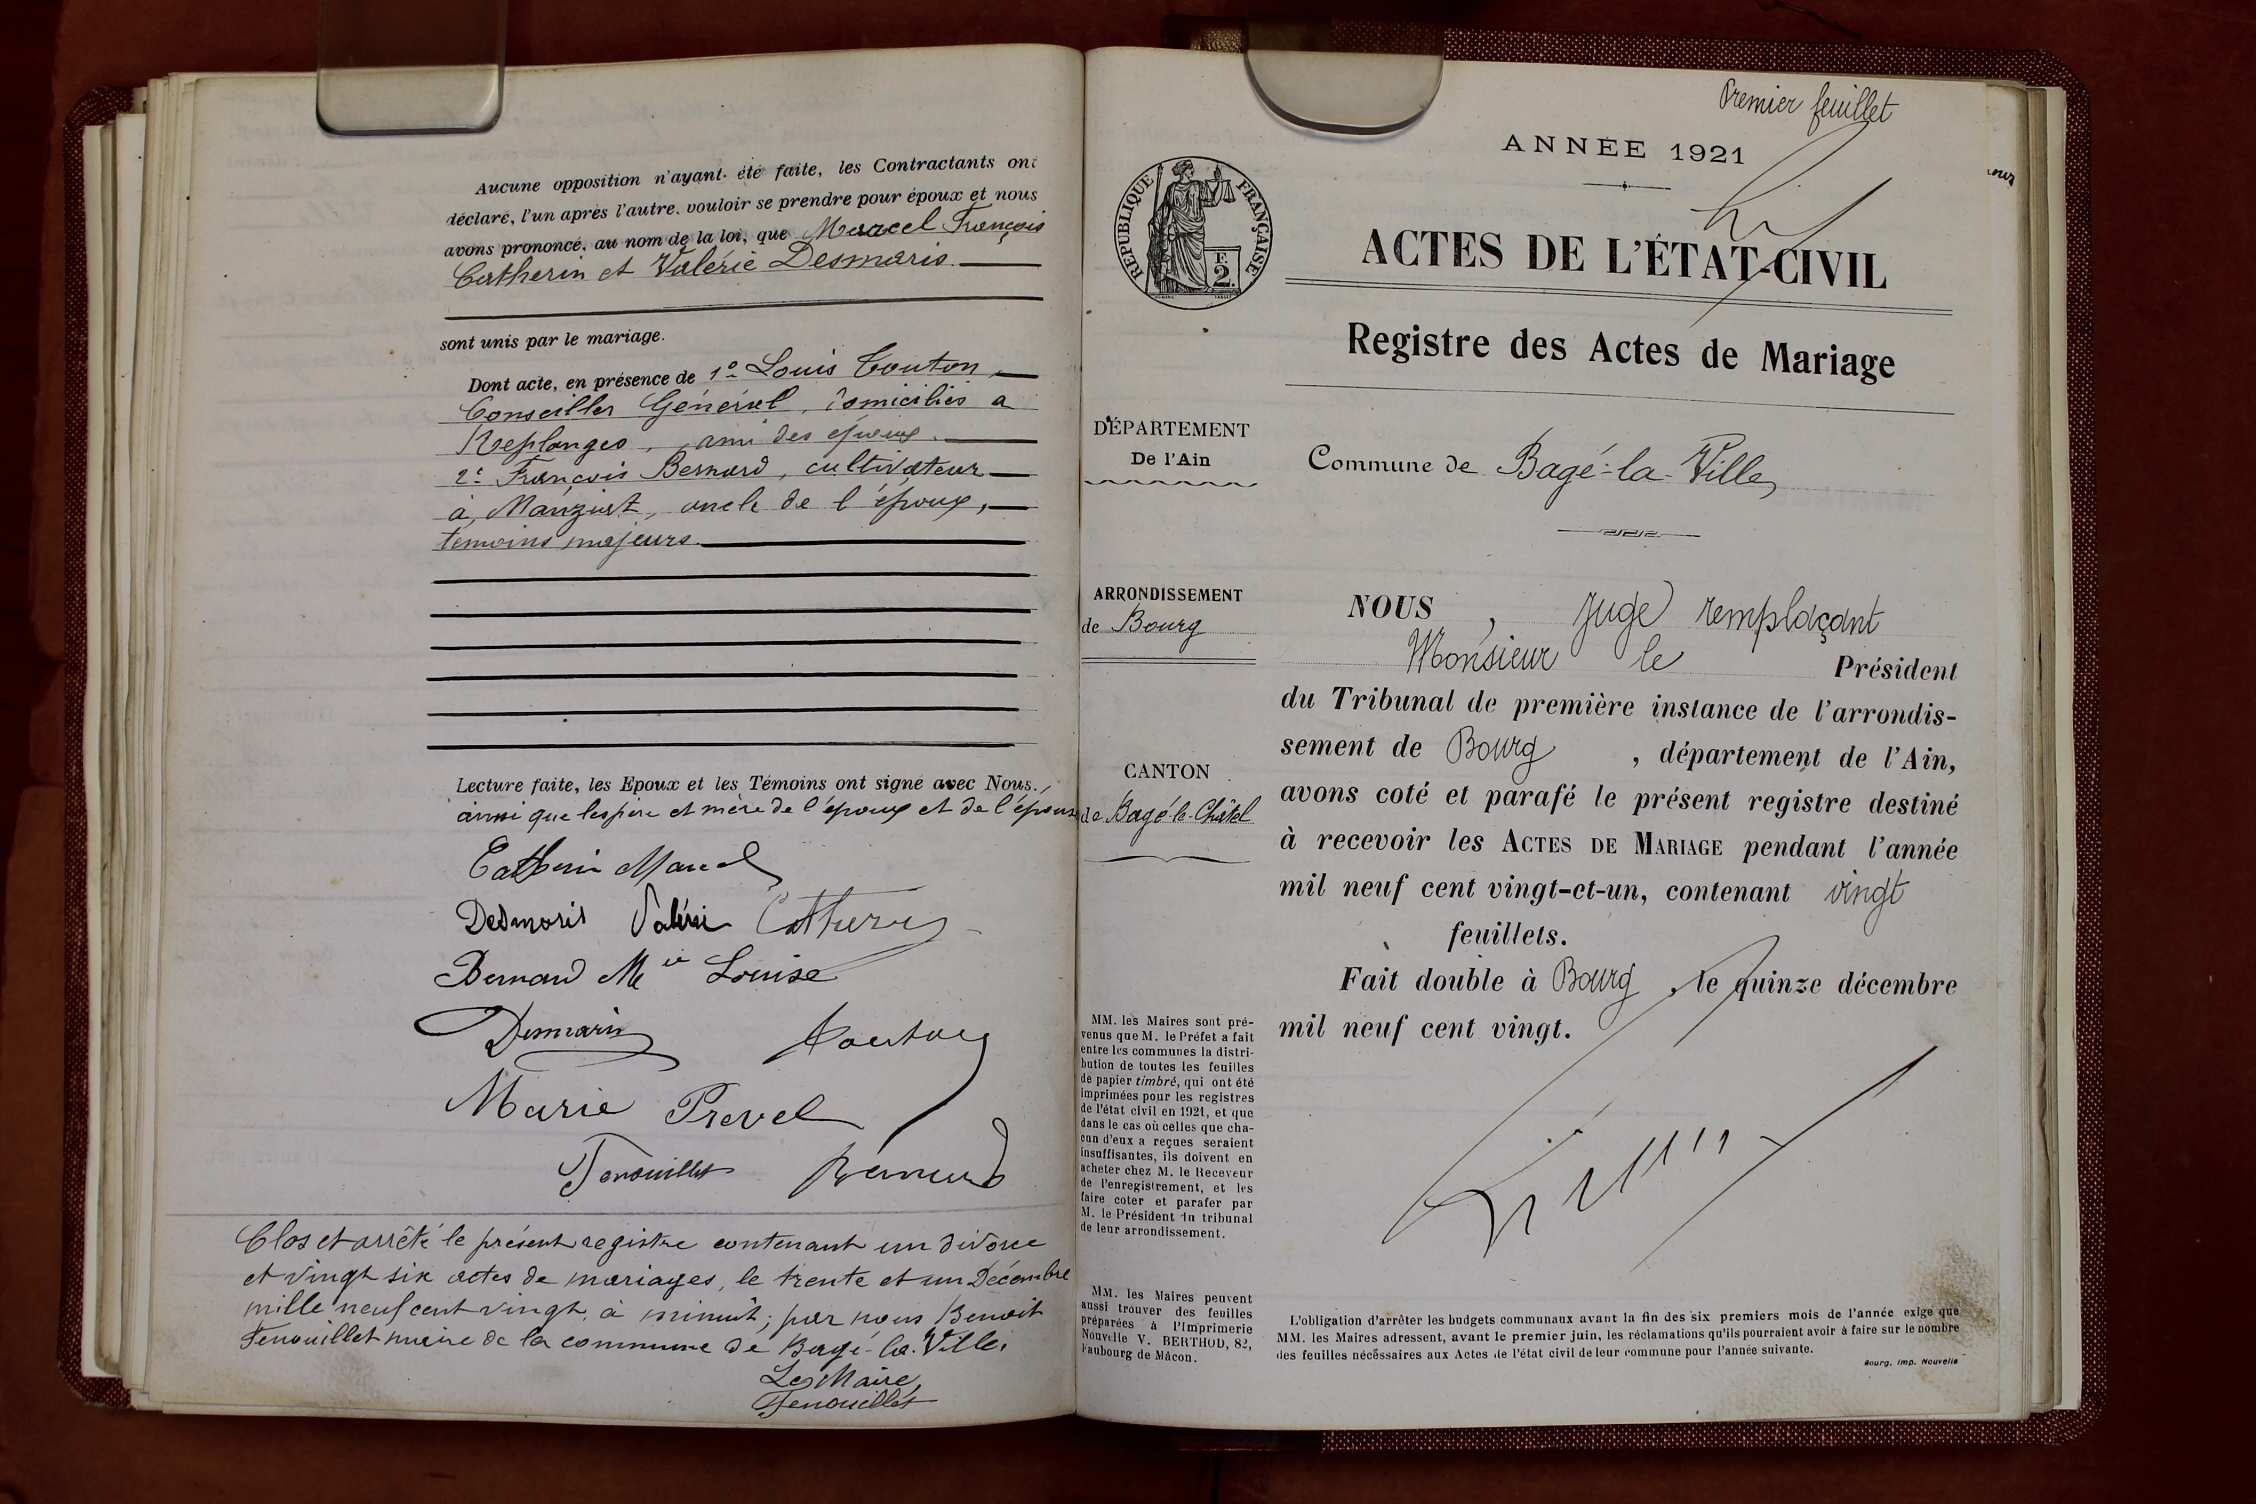 Aucune opposition n'ayant été faite, les Contractants ont
déclaré, l'un après l'autre, vouloir se prendre pour époux et nous
avons prononcé, au nom de la loi, que Marcel François
Catherin et Valérie Desmaris.
sont unis par le mariage.
Dont acte, en présence de 1º Louis Touton,
Conseiller Général, domiciliés a
Replonges, ami des époux.
2º François Bernard, cultivateur
à, Manziat, oncle de l'époux,
témoins majeurs.
Lecture faite, les Epoux et les Témoins ont signé avec Nous,
ainsi que les père et mère de l'époux et de l'épouse
Catherin Marcel
Desmaris Valérie Catherin
Bernard Mie Louise
Desmaris Touton
Marie Prevel
Fenouillet Bernard
Clos et arrêté le présent registre contenant un divorce
et vingt six actes de mariages, le trente et un Décembre
mille neuf cent vingt, à minuit; par nous Benoit
Fenouillet maire de la commune de Bagé-la-Ville.
Le Maire,
Fenouillet
Premier feuillet
ANNÉE 1921
RÉPUBLIQUE FRANÇAISE
F.
2.
ACTES DE L'ÉTAT-CIVIL
Registre des Actes de Mariage
DÉPARTEMENT
De l'Ain
Commune de Bagé-la-Ville
ARRONDISSEMENT
de Bourg
CANTON
de Bagé-le-Châtel
NOUS, Juge remplaçant
Monsieur le Président
du Tribunal de première instance de l'arrondis-
sement de Bourg, département de l'Ain,
avons coté et parafé le présent registre destiné
à recevoir les ACTES DE MARIAGE pendant l'année
mil neuf cent vingt-et-un, contenant vingt
feuillets.
Fait double à Bourg, le quinze décembre
mil neuf cent vingt.
MM. les Maires sont pré-
venus que M. le Préfet a fait
entre les communes la distri-
bution de toutes les feuilles
de papier timbré, qui ont été
imprimées pour les registres
de l'état civil en 1921, et que
dans le cas où celles que cha-
cun d'eux a reçues seraient
insuffisantes, ils doivent en
acheter chez M. le Receveur
de l'enregistrement, et les
faire coter et parafer par
M. le Président du tribunal
de leur arrondissement.
MM. les Maires peuvent
aussi trouver des feuilles
préparées à l'Imprimerie
Nouvelle V. BERTHOD, 82,
Faubourg de Mâcon.
L'obligation d'arrêter les budgets communaux avant la fin des six premiers mois de l'année exige que
MM. les Maires adressent, avant le premier juin, les réclamations qu'ils pourraient avoir à faire sur le nombre
des feuilles nécessaires aux Actes de l'état civil de leur commune pour l'année suivante.
Bourg, Imp. Nouvelle